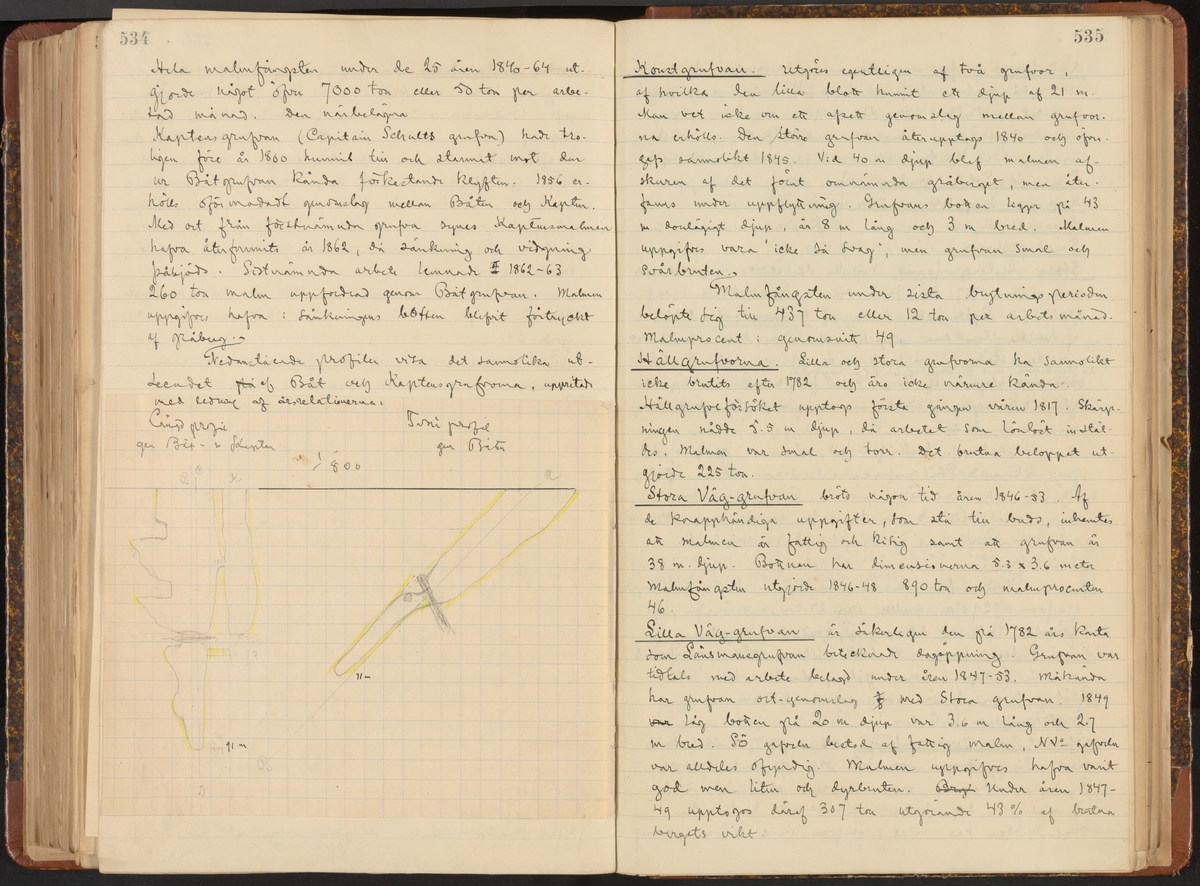 534
Hela malmfångsten under de 25 åren 1840-64 ut-
gjorde något öfver 7000 ton eller 50 ton per arbe-
tad månad. Den närbelägna
Kaptensgrufvan (Capitain Schultz grufva) hade tro-
ligen före år 1800 hunnit till och stannat mot den
ur Båtgrufvan kända förkastande klyften. 1856 er-
hölls oförmodadt genomslag mellan Båten och Kapten.
Med ort från förstnämnda grufva synes Kaptensmalmen
hafva återfunnits år 1862, då sänkning och vidgning
påbjöds. Sistnämnda arbete lemnade 1862-63
260 ton malm uppfordrad genom Båtgrufvan. Malmen
uppgifves hafva i sänkningens botten blifvit förtryckt
af gråberg.
Nedanstående profiler visa det sannolika ut-
seendet af Båt och Kaptensgrufvorna, uppritade
med ledning af års relationerna.
Längdprofil
gm Båt- o Kapten
Tvärprofil
gm Båten
1/800
11 m
91 m
535
Konstgrufvan. Utgöres egentligen af två grufvor,
af hvilka den lilla blott hunnit ett djup af 21 m.
Man vet icke om ett afsett genomslag mellan grufvor-
na erhölls. Den större grufvan återupptogs 1840 och öfver-
gafs sannolikt 1845. Vid 40 m djup blef malmen af-
skuren af det förut omnämnda gråberget, men åter-
fanns under uppflyttning. Grufvans botten ligger på 43
m donlägigt djup, är 8 m lång och 3 m bred. Malmen
uppgifves vara "icke så svag", men grufvan smal och
svårbruten.
Malmfångsten under sista brytningsperioden
belöpte sig till 437 ton eller 12 ton per arbetsmånad.
Malmprocent i genomsnitt 49
Hällgrufvorna. Lilla och stora grufvorna ha sannolikt
icke brutits efter 1782 och äro icke närmare kända.
Hällgrufveförsöket upptogs första gången våren 1817. Skärp-
ningen nådde 5.5 m djup, då arbetet som lönlöst instäl-
des. Malmen var smal och torr. Det brutna beloppet ut-
gjorde 225 ton.
Stora Väg-grufvan bröts någon tid åren 1846-53. Af
de knapphändiga uppgifter, som stå till buds, inhemtas
att malmen är fattig och kisig samt att grufvan är
38 m. djup. Bottnen har dimensionerna 5.3 x 3.6 meter
Malmfångsten utgjorde 1846-48 890 ton och malmprocenten
46.
Lilla Väg-grufvan är säkerligen den på 1782 års karta
som Länsmansgrufvan betecknade dagöppning. Grufvan var
tidtals med arbete belagd under åren 1847-53.
har grufvan ort-genomslag med Stora grufvan. 1849
låg botten på 20 m djup var 3.6 m lång och 2.7
m bred. SÖ gafveln bestod af fattig malm, NV gafveln
var alldeles ofyndig. Malmen uppgifves hafva varit
god men liten och dyrbruten. Under åren 1847-
49 upptogos däraf 307 ton utgörande 43% af brutna
bergets vikt.